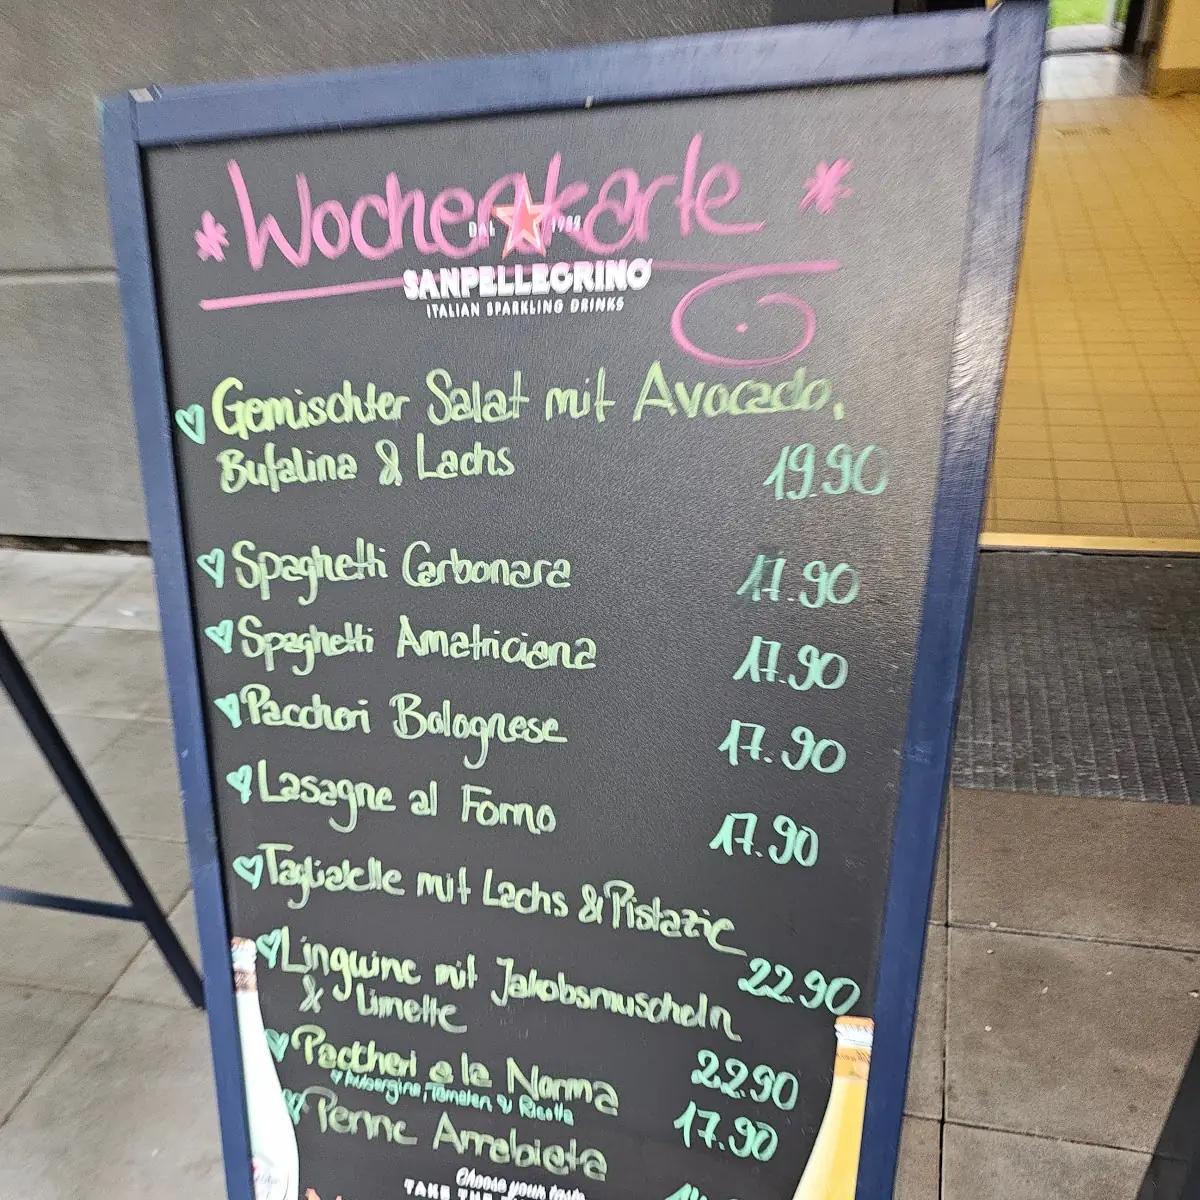 * Wochenkarte *
DAL 1932
SANPELLEGRINO
ITALIAN SPARKLING DRINKS
Gemischter Salat mit Avocado,
Bufalina & Lachs 19.90
Spaghetti Carbonara 17.90
Spaghetti Amatriciana 17.90
Paccheri Bolognese 17.90
Lasagne al Forno 17.90
Tagliatelle mit Lachs & Pistazie
22.90
Linguine mit Jakobsmuscheln
& Limette
22.90
Paccheri a la Norma
Aubergine, Tomaten & Ricotta
17.90
Penne Arrabiata
Choose your taste
TAKE THE